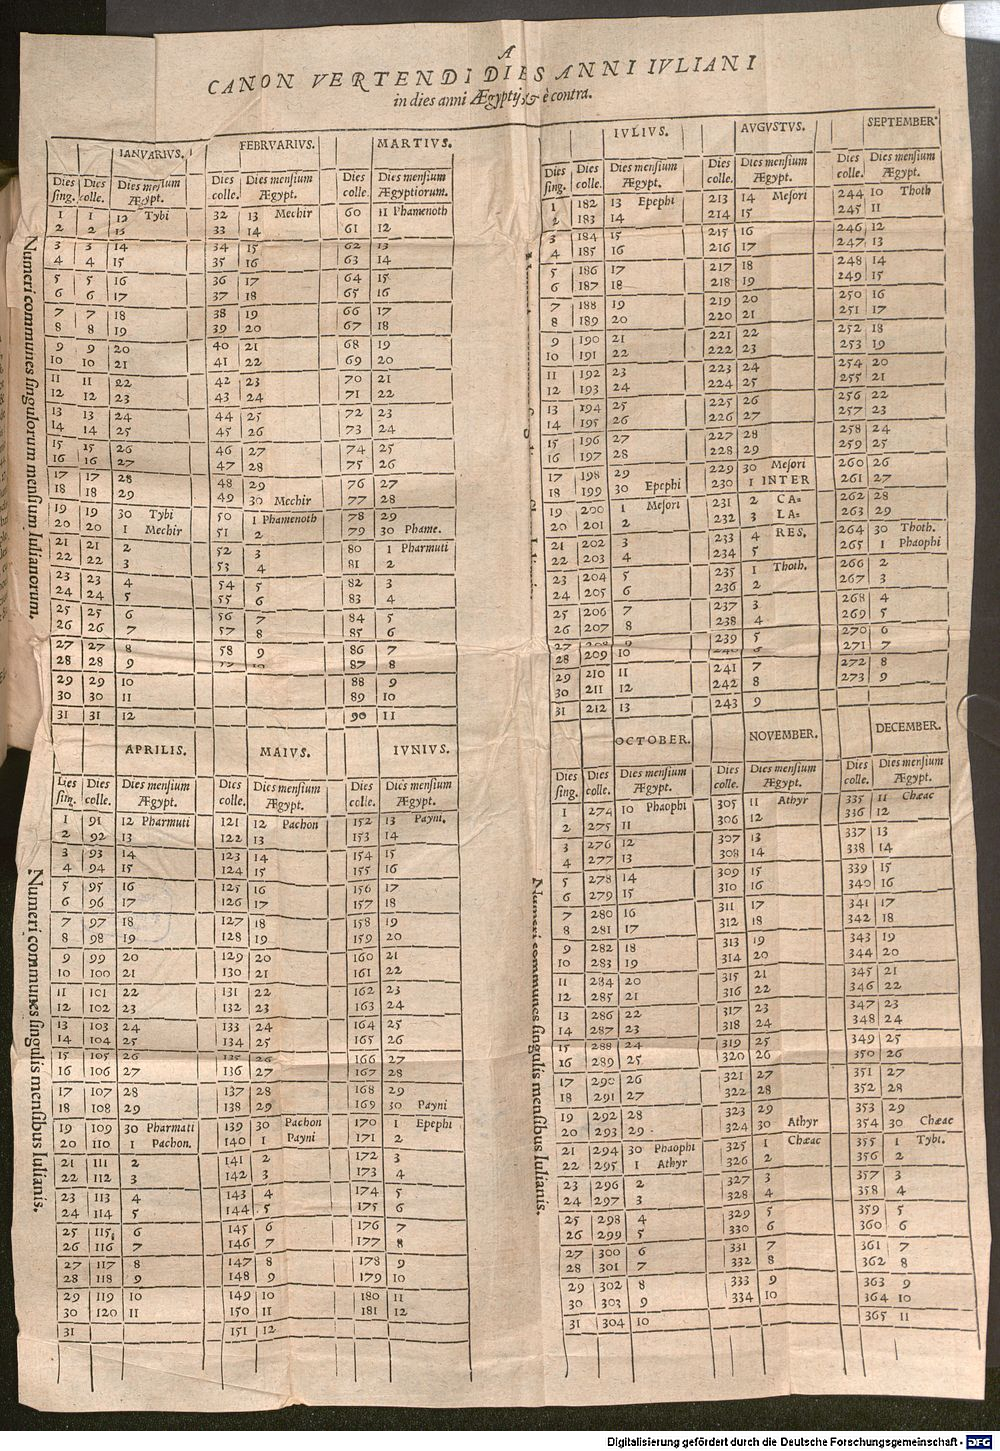 A
CANON VERTENDI DIES ANNI IVLIANI
in dies anni Ægyptij, & è contra.
IANVARIVS. FEBRVARIVS. MARTIVS.
Dies Dies Dies menſium Dies Dies menſium Dies Dies menſium
ſing. colle. Ægypt. colle. Ægypt. colle. Ægyptiorum.
1 1 12 Tybi 32 13 Mechir 60 11 Phamenoth
2 2 13 33 14 61 12
3 3 14 34 15 62 13
4 4 15 35 16 63 14
5 5 16 36 17 64 15
6 6 17 37 18 65 16
7 7 18 38 19 66 17
8 8 19 39 20 67 18
9 9 20 40 21 68 19
10 10 21 41 22 69 20
11 11 22 42 23 70 21
12 12 23 43 24 71 22
13 13 24 44 25 72 23
14 14 25 45 26 73 24
15 15 26 46 27 74 25
16 16 27 47 28 75 26
17 17 28 48 29 76 27
18 18 29 49 30 Mechir 77 28
19 19 30 Tybi 50 1 Phamenoth 78 29
20 20 1 Mechir 51 2 79 30 Phame.
21 21 2 52 3 80 1 Pharmuti
22 22 3 53 4 81 2
23 23 4 54 5 82 3
24 24 5 55 6 83 4
25 25 6 56 7 84 5
26 26 7 57 8 85 6
27 27 8 58 9 86 7
28 28 9 10 87 8
29 29 10 88 9
30 30 11 89 10
31 31 12 90 11
Numeri communes ſingulorum menſium Iulianorum.
APRILIS. MAIVS. IVNIVS.
Dies Dies Dies menſium Dies Dies menſium Dies Dies menſium
ſing. colle. Ægypt. colle. Ægypt. colle. Ægypt.
1 91 12 Pharmuti 121 12 Pachon 152 13 Payni.
2 92 13 122 13 153 14
3 93 14 123 14 154 15
4 94 15 124 15 155 16
5 95 16 125 16 156 17
6 96 17 126 17 157 18
7 97 18 127 18 158 19
8 98 19 128 19 159 20
9 99 20 129 20 160 21
10 100 21 130 21 161 22
11 101 22 131 22 162 23
12 102 23 132 23 163 24
13 103 24 133 24 164 25
14 104 25 134 25 165 26
15 105 26 135 26 166 27
16 106 27 136 27 167 28
17 107 28 137 28 168 29
18 108 29 138 29 169 30 Payni
19 109 30 Pharmati 139 30 Pachon 170 1 Epephi
20 110 1 Pachon. 140 1 Payni 171 2
21 111 2 141 2 172 3
22 112 3 142 3 173 4
23 113 4 143 4 174 5
24 114 5 144 5 175 6
25 115 6 145 6 176 7
26 116 7 146 7 177 8
27 117 8 147 8 178 9
28 118 9 148 9 179 10
29 119 10 149 10 180 11
30 120 11 150 11 181 12
31 151 12
Numeri communes ſingulis menſibus Iulianis.
IVLIVS. AVGVSTVS. SEPTEMBER
Dies Dies Dies menſium Dies Dies menſium Dies Dies menſium
ſing. colle. Ægypt. colle. Ægypt. colle. Ægypt.
1 182 13 Epephi 213 14 Meſori 244 10 Thoth
2 183 14 214 15 245 11
3 184 15 215 16 246 12
4 185 16 216 17 247 13
5 186 17 217 18 248 14
6 187 18 218 19 249 15
7 188 19 219 20 250 16
8 189 20 220 21 251 17
9 190 21 221 22 252 18
10 191 22 222 23 253 19
11 192 23 223 24 254 20
12 193 24 224 25 255 21
13 194 25 225 26 256 22
14 195 26 226 27 257 23
15 196 27 227 28 258 24
16 197 28 228 29 259 25
17 198 29 229 30 Meſori 260 26
18 199 30 Epephi 230 1 INTER 261 27
19 200 1 Meſori 231 2 CA= 262 28
20 201 2 232 3 LA= 263 29
21 202 3 233 4 RES. 264 30 Thoth.
22 203 4 234 5 265 1 Phaophi
23 204 5 235 1 Thoth. 266 2
24 205 6 236 2 267 3
25 206 7 237 3 268 4
26 207 8 238 4 269 5
27 208 9 239 5 270 6
28 209 10 240 6 271 7
29 210 11 241 7 272 8
30 211 12 242 8 273 9
31 212 13 243 9
OCTOBER. NOVEMBER. DECEMBER.
Dies Dies Dies menſium Dies Dies menſium Dies Dies menſium
ſing. colle. Ægypt. colle. Ægypt. colle. Ægypt.
1 274 10 Phaophi 305 11 Athyr 335 11 Chæac
2 275 11 306 12 336 12
3 276 12 307 13 337 13
4 277 13 308 14 338 14
5 278 14 309 15 339 15
6 279 15 310 16 340 16
7 280 16 311 17 341 17
8 281 17 312 18 342 18
9 282 18 313 19 343 19
10 283 19 314 20 344 20
11 284 20 315 21 345 21
12 285 21 316 22 346 22
13 286 22 317 23 347 23
14 287 23 318 24 348 24
15 288 24 319 25 349 25
16 289 25 320 26 350 26
17 290 26 321 27 351 27
18 291 27 322 28 352 28
19 292 28 323 29 353 29
20 293 29 324 30 Athyr 354 30 Chæac
21 294 30 Phaophi 325 1 Chæac 355 1 Tybi.
22 295 1 Athyr 326 2 356 2
23 296 2 327 3 357 3
24 297 3 328 4 358 4
25 298 4 329 5 359 5
26 299 5 330 6 360 6
27 300 6 331 7 361 7
28 301 7 332 8 362 8
29 302 8 333 9 363 9
30 303 9 334 10 364 10
31 304 10 365 11
Numeri communes ſingulis menſibus Iulianis.
Digitalisierung gefördert durch die Deutsche Forschungsgemeinschaft - DFG